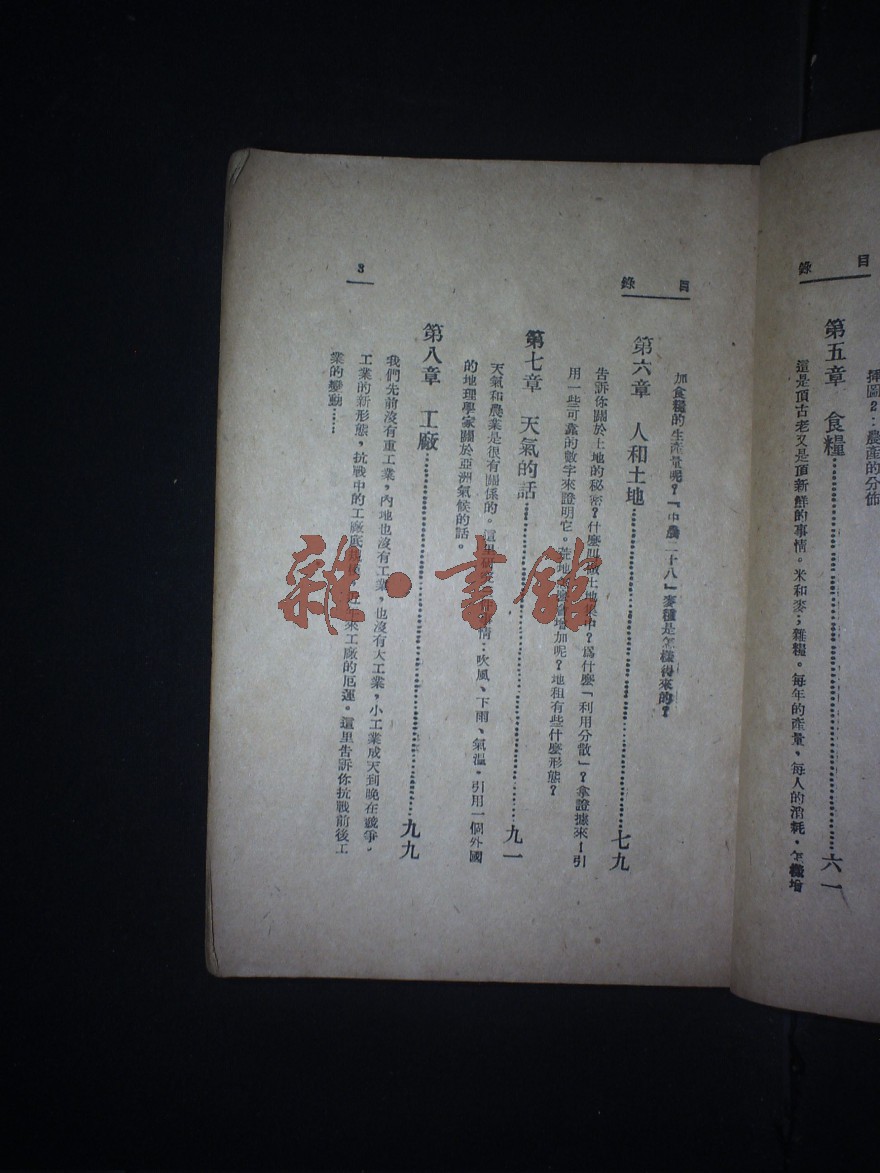 目錄
插圖2：農產的分佈
第五章　食糧……六一
這是頂古老又是頂新鮮的事情。米和麥；雜糧。每年的產量，每人的消耗，怎樣增
目錄
加食糧的生產量呢？「中農二十八」麥種是怎樣得來的？
第六章　人和土地……七九
告訴你關於土地的秘密？什麼叫做土地集中？爲什麼「利用分散」？拿證據來！引
用一些可靠的數字來證明它。荒地　增加呢？地租有些什麼形態？
第七章　天氣的話……九一
天氣和農業是很有關係的。這里　事情：吹風、下雨、氣溫，引用一個外國
的地理學家關於亞洲氣候的話。
第八章　工廠……九九
我們先前沒有重工業，內地也沒有工業，也沒有大工業，小工業成天到晚在戰爭。
工業的新形態，抗戰中的工廠底　來工廠的厄運。這里告訴你抗戰前後工
業的變動……
3
雜·書館